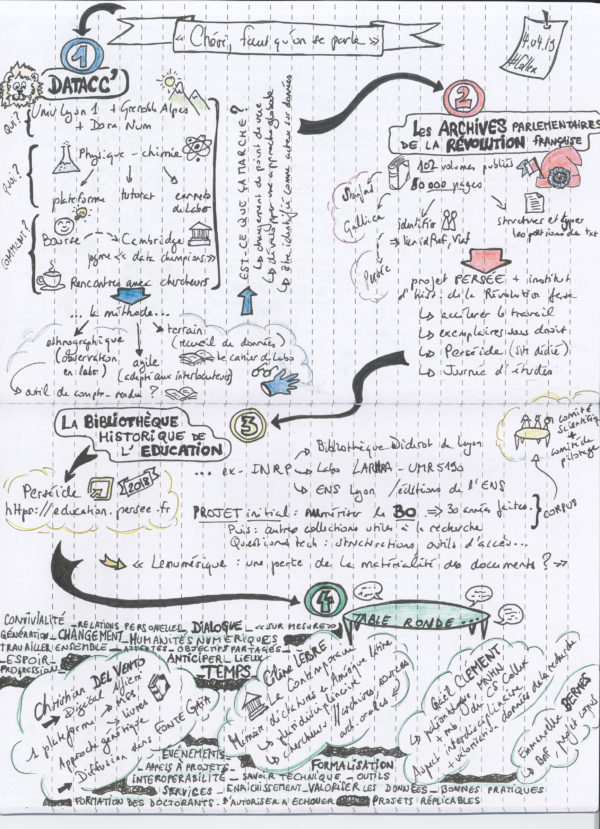 « Chéri, faut qu'on se parle »
4.04.19
#Collex
1
DATACC'
QUI ?
Univ Lyon 1 + Grenoble Alpes
+ Dora Num
QUOI ?
Physique - chimie
plateforme
tutorat
carnets
de labo
COMMENT ?
Bourse
Cambridge
pgme « data champions »
Rencontres avec chercheurs
... la méthode...
ethnographique
(observation
en labo)
agile
(adapté aux interlocuteurs)
terrain
(recueil de données)
le cahier de labo
outil de compte-rendu ?
EST-CE QUE ÇA MARCHE ?
↳ changement de point de vue
↳ développer une approche globale
↳ être identifié comme acteur sur données
2
Les ARCHIVES PARLEMENTAIRES
DE LA RÉVOLUTION FRANÇAISE
102 volumes publiés
80 000 pages
Stanford
Gallica
Persée
identifier
⇒ lien IdRef, Viaf
structurer et typer
les portions de txt
projet PERSÉE + institut
d'hist. de la Révolution fçse
↳ accélérer le travail
↳ exemplaires sans droit
↳ Perséide (site dédié)
↳ Journée d'études
3
LA BIBLIOTHÈQUE
HISTORIQUE DE
L'EDUCATION
Perséide
2018
https://education.persee.fr
... ex-INRP
Bibliothèque Diderot de Lyon
Labo LARHRA - UMR 5190
ENS Lyon / éditions de l'ENS
comité
scientifique
+
comité de
pilotage
PROJET initial : numériser le BO ⇒ 30 années faites.
Puis : autres collections utiles à la recherche
Questions tech : structurations, outils d'accès...
CORPUS
« Le numérique : une perte de la matérialité des documents ? »
4
TABLE RONDE...
CONVIVIALITÉ - RELATIONS PERSONNELLES - DIALOGUE - « SUR MESURE »
GÉNÉRATION - CHANGEMENT - HUMANITÉS NUMÉRIQUES
TRAVAILLER ENSEMBLE - ATTENTES - OBJECTIFS PARTAGÉS -
- ESPOIR - ANTICIPER - LIEUX
PROGRESSION
TEMPS
Christian DEL VENTO
Digital
1 plateforme
MSS
livres
Approche génétique
Diffusion dans
Céline LEBRE
La Contemporaine
Mémoire dictatures Amérique latine
arch. orales
Cécil CLEMENT
MNHN
CS Collex
Aspect interdisciplinaire
+ valorisation données de la recherche
Emmanuelle BERMES
BnF, projet corpus
EVÉNEMENTS - FORMALISATION
- APPELS À PROJETS -
INTEROPÉRABILITÉ - SAVOIR TECHNIQUE - OUTILS
SERVICES - ENRICHISSEMENT - VALORISER LES DONNÉES - BONNES PRATIQUES
FORMATION DES DOCTORANTS - S'AUTORISER À ECHOUER - PROJETS RÉPLICABLES